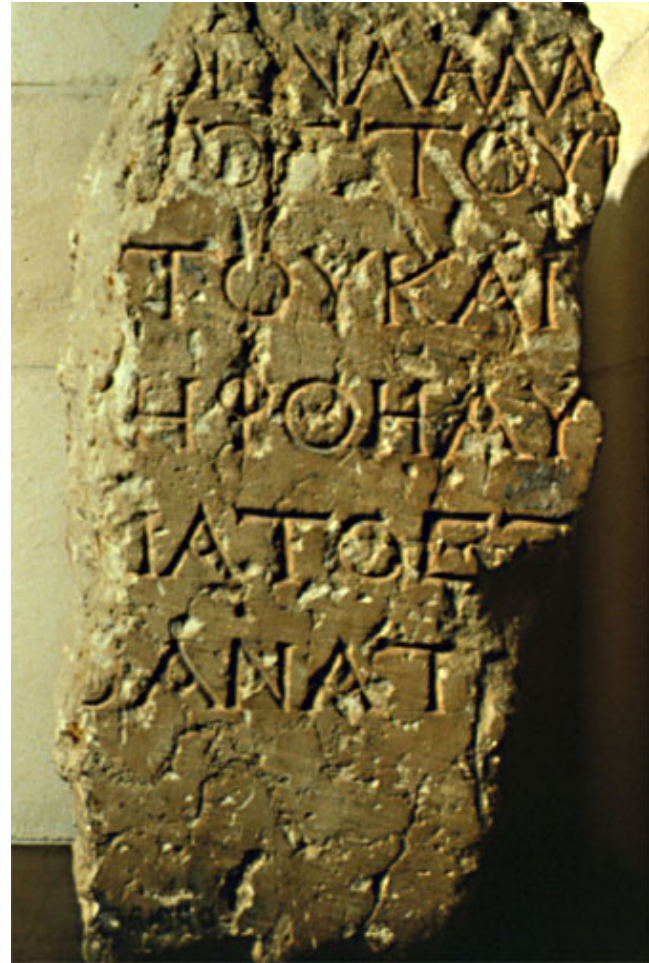 ΝΑΑΛΛ
ΟΣΤΟΥΠ
ΤΟΥΚΑΙ
ΗΦΘΗΑΥ
ΙΑΤΟΕΞ
ΘΑΝΑΤ